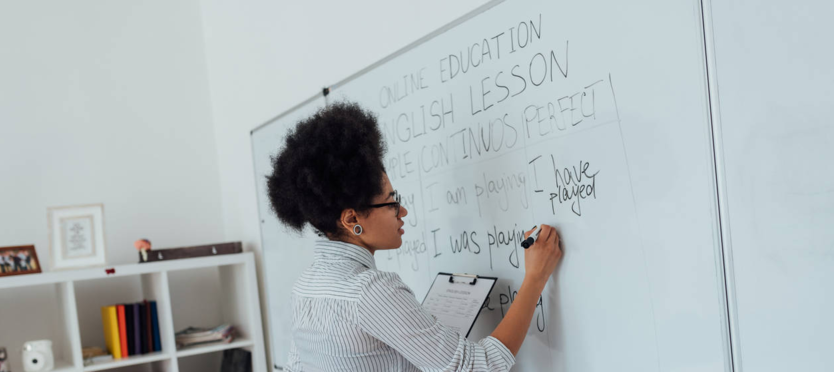 ONLINE EDUCATION
ENGLISH LESSON
CONTINUOS PERFECT
I am playing I have played
played I was playing